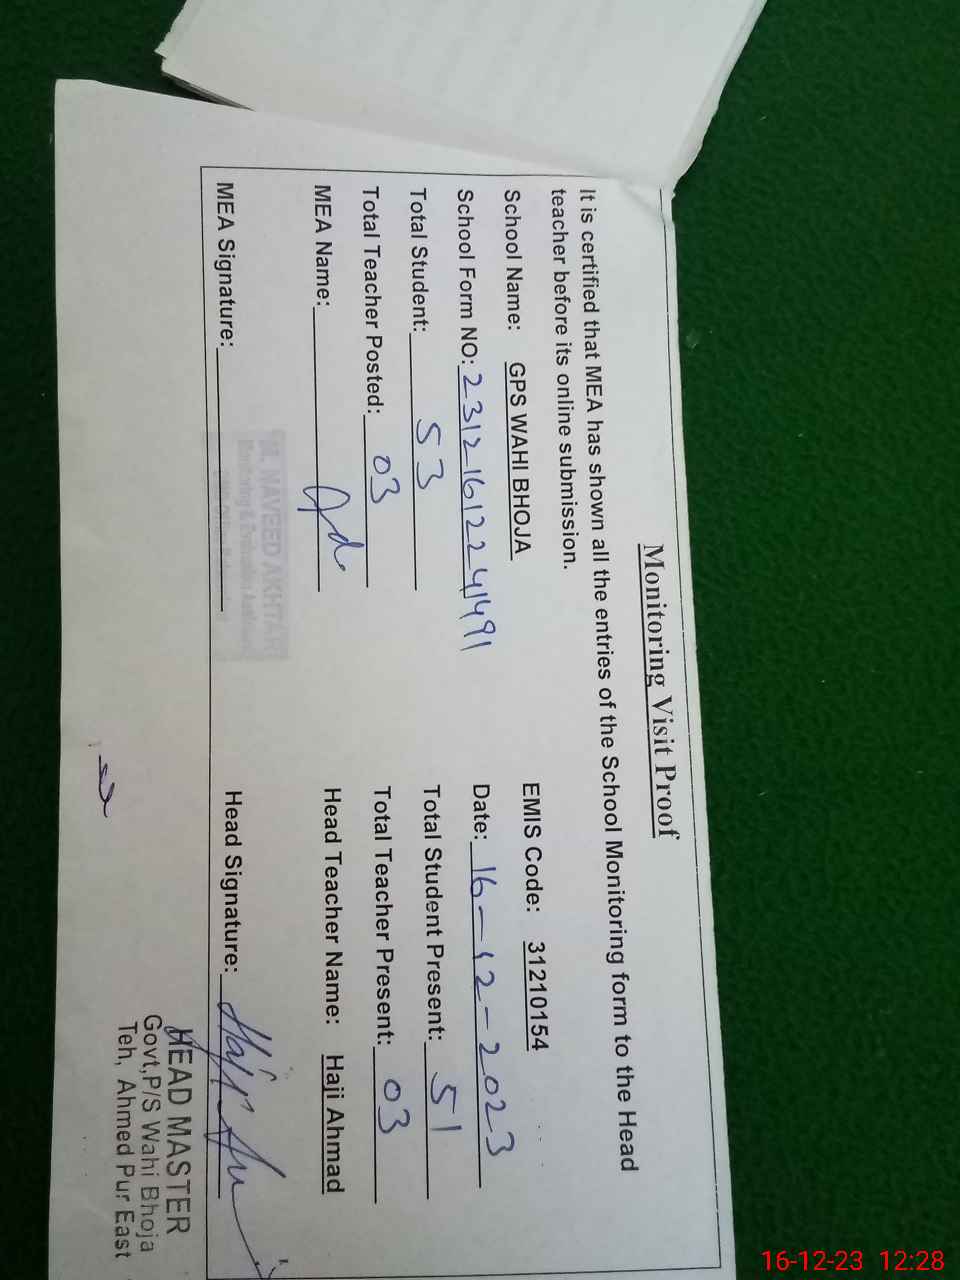 Monitoring Visit Proof
It is certified that MEA has shown all the entries of the School Monitoring form to the Head
teacher before its online submission.
School Name: GPS WAHI BHOJA EMIS Code: 31210154
School Form NO: 23121612241491 Date: 16-12-2023
Total Student: 53 Total Student Present: 51
Total Teacher Posted: 03 Total Teacher Present: 03
MEA Name: Head Teacher Name: Haji Ahmad
M. NAVEED AKHTAR
MEA Signature: Head Signature:
HEAD MASTER
Govt,P/S Wahi Bhoja
Teh, Ahmed Pur East
16-12-23 12:28